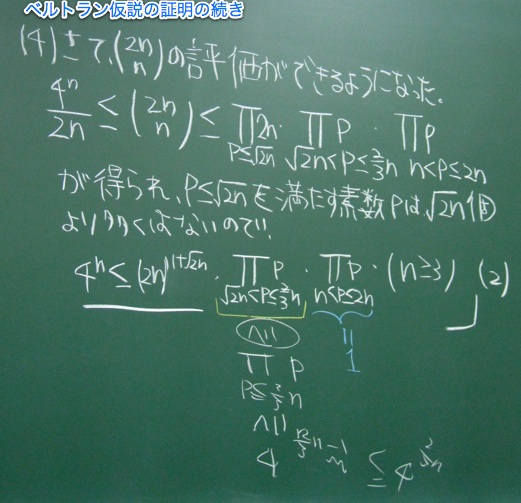 ベルトラン仮説の証明の続き
(4) さて、(2n n) の評価ができるようになった。
4^n/2n ≤ (2n n) ≤ ∏_{P≤√2n} 2n · ∏_{√2n<P≤2/3n} P · ∏_{n<P≤2n} P
が得られ、P≤√2n を満たす素数Pは、√2n個
より多くはないので、
4^n ≤ (2n)^{1+√2n} · ∏_{√2n<P≤2/3n} P · ∏_{n<P≤2n} P · (n≥3) (2)
∧|| || 1
∏_{P≤2/3n} P
∧||
≤ 4^{2/3n}